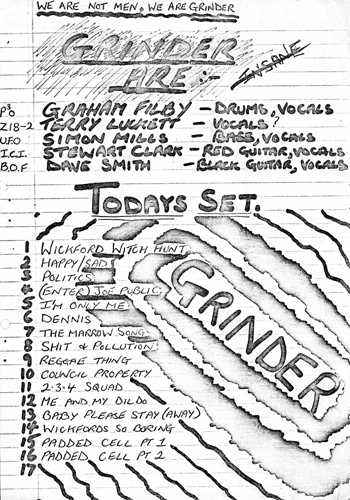 WE ARE NOT MEN, WE ARE GRINDER
GRINDER
ARE :-
INSANE
P³O GRAHAM FILBY - DRUMS, VOCALS
Z18-2 TERRY LUCKETT - VOCALS?
UFO SIMON MILLS - BASS, VOCALS
I.C.I. STEWART CLARK - RED GUITAR, VOCALS
B.O.F DAVE SMITH - BLACK GUITAR, VOCALS
TODAYS SET.
1 WICKFORD WITCH HUNT
2 HAPPY/SAD
3 POLITICS
4 (ENTER) JOE PUBLIC
5 I'M ONLY ME
6 DENNIS
7 THE MARROW SONG
8 SHIT & POLLUTION
9 REGGAE THING
10 COUNCIL PROPERTY
11 2-3-4 SQUAD
12 ME AND MY DILDO
13 BABY PLEASE STAY (AWAY)
14 WICKFORDS SO BORING
15 PADDED CELL PT 1
16 PADDED CELL PT 2
17
GRINDER